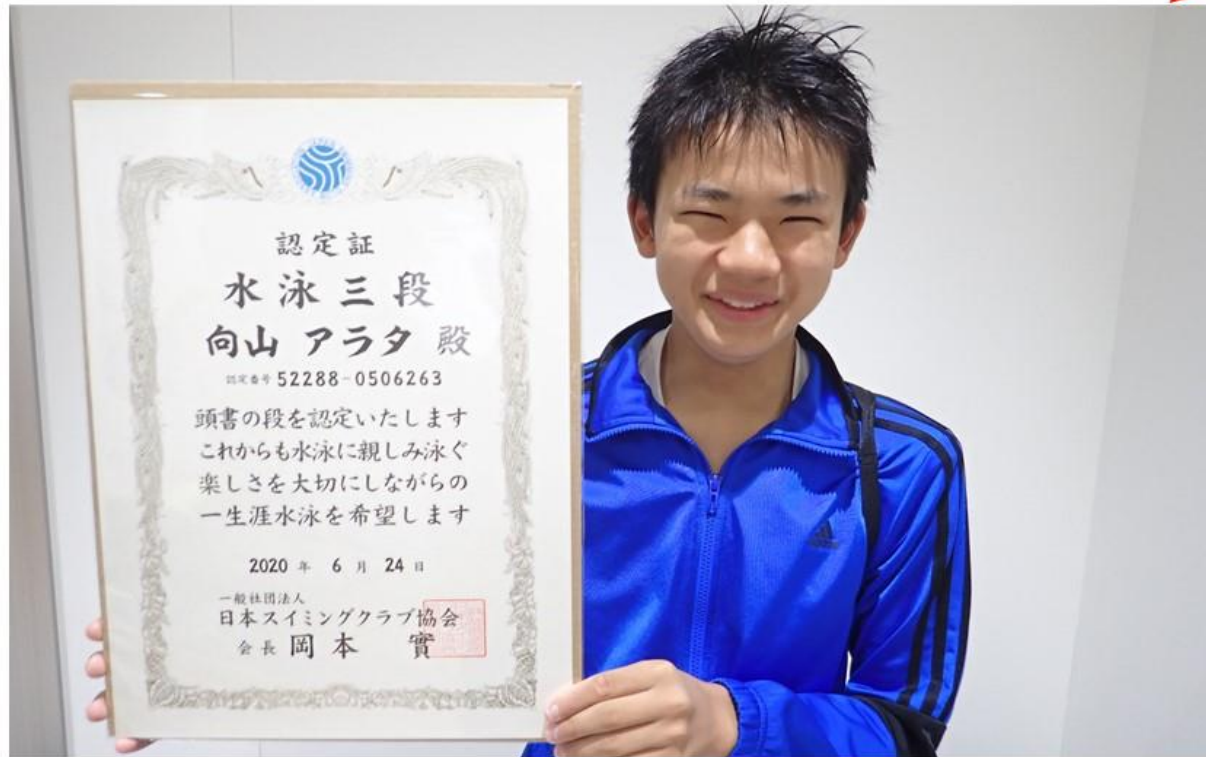 認定証
水泳三段
向山 アラタ 殿
認定番号 52288-0506263
頭書の段を認定いたします
これからも水泳に親しみ泳ぐ
楽しさを大切にしながらの
一生涯水泳を希望します
2020 年 6 月 24 日
一般社団法人
日本スイミングクラブ協会
会長 岡本 實
adidas